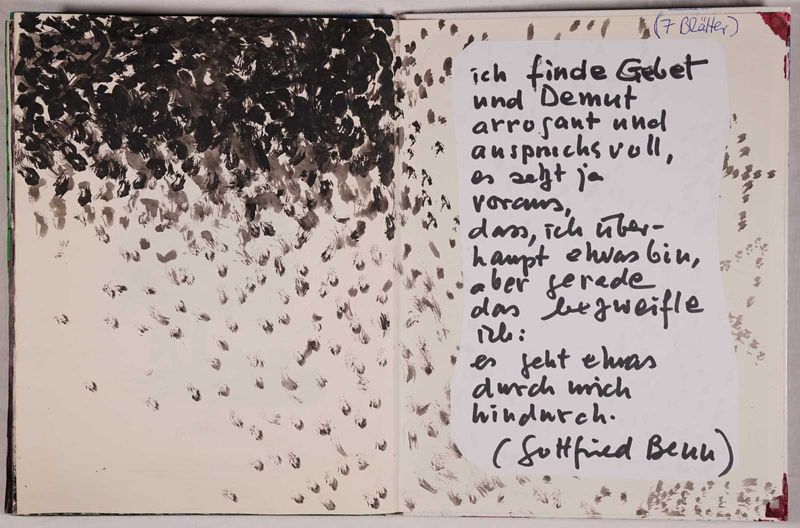 (7 Blätter)
ich finde Gebet
und Demut
arrogant und
anspruchsvoll,
es setzt ja
voraus,
dass, ich über-
haupt etwas bin,
aber gerade
das bezweifle
ich:
es geht etwas
durch mich
hindurch.
(Gottfried Benn)